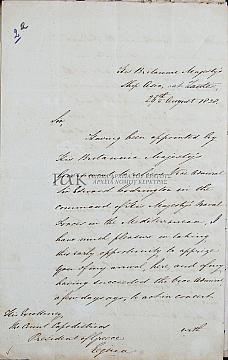 2
His Britannic Majesty's
Ship Asia, at
28th August 1828.
Sir,
Having been appointed by
His Britannic Majesty's
Government to succeed Vice Admiral
Sir Edward Codrington in the
command of His Majesty's Naval
Forces in the Mediterranean, I
have much pleasure in taking
this early opportunity to apprize
you of my arrival here, and of my
having succeeded the Vice Admiral
a few days ago, to act in concert
with
His Excellency,
the Count Capodistrias
President of Greece
ΓΑΚ
ΑΡΧΕΙΑ ΝΟΜΟΥ ΚΕΡΚΥΡΑΣ